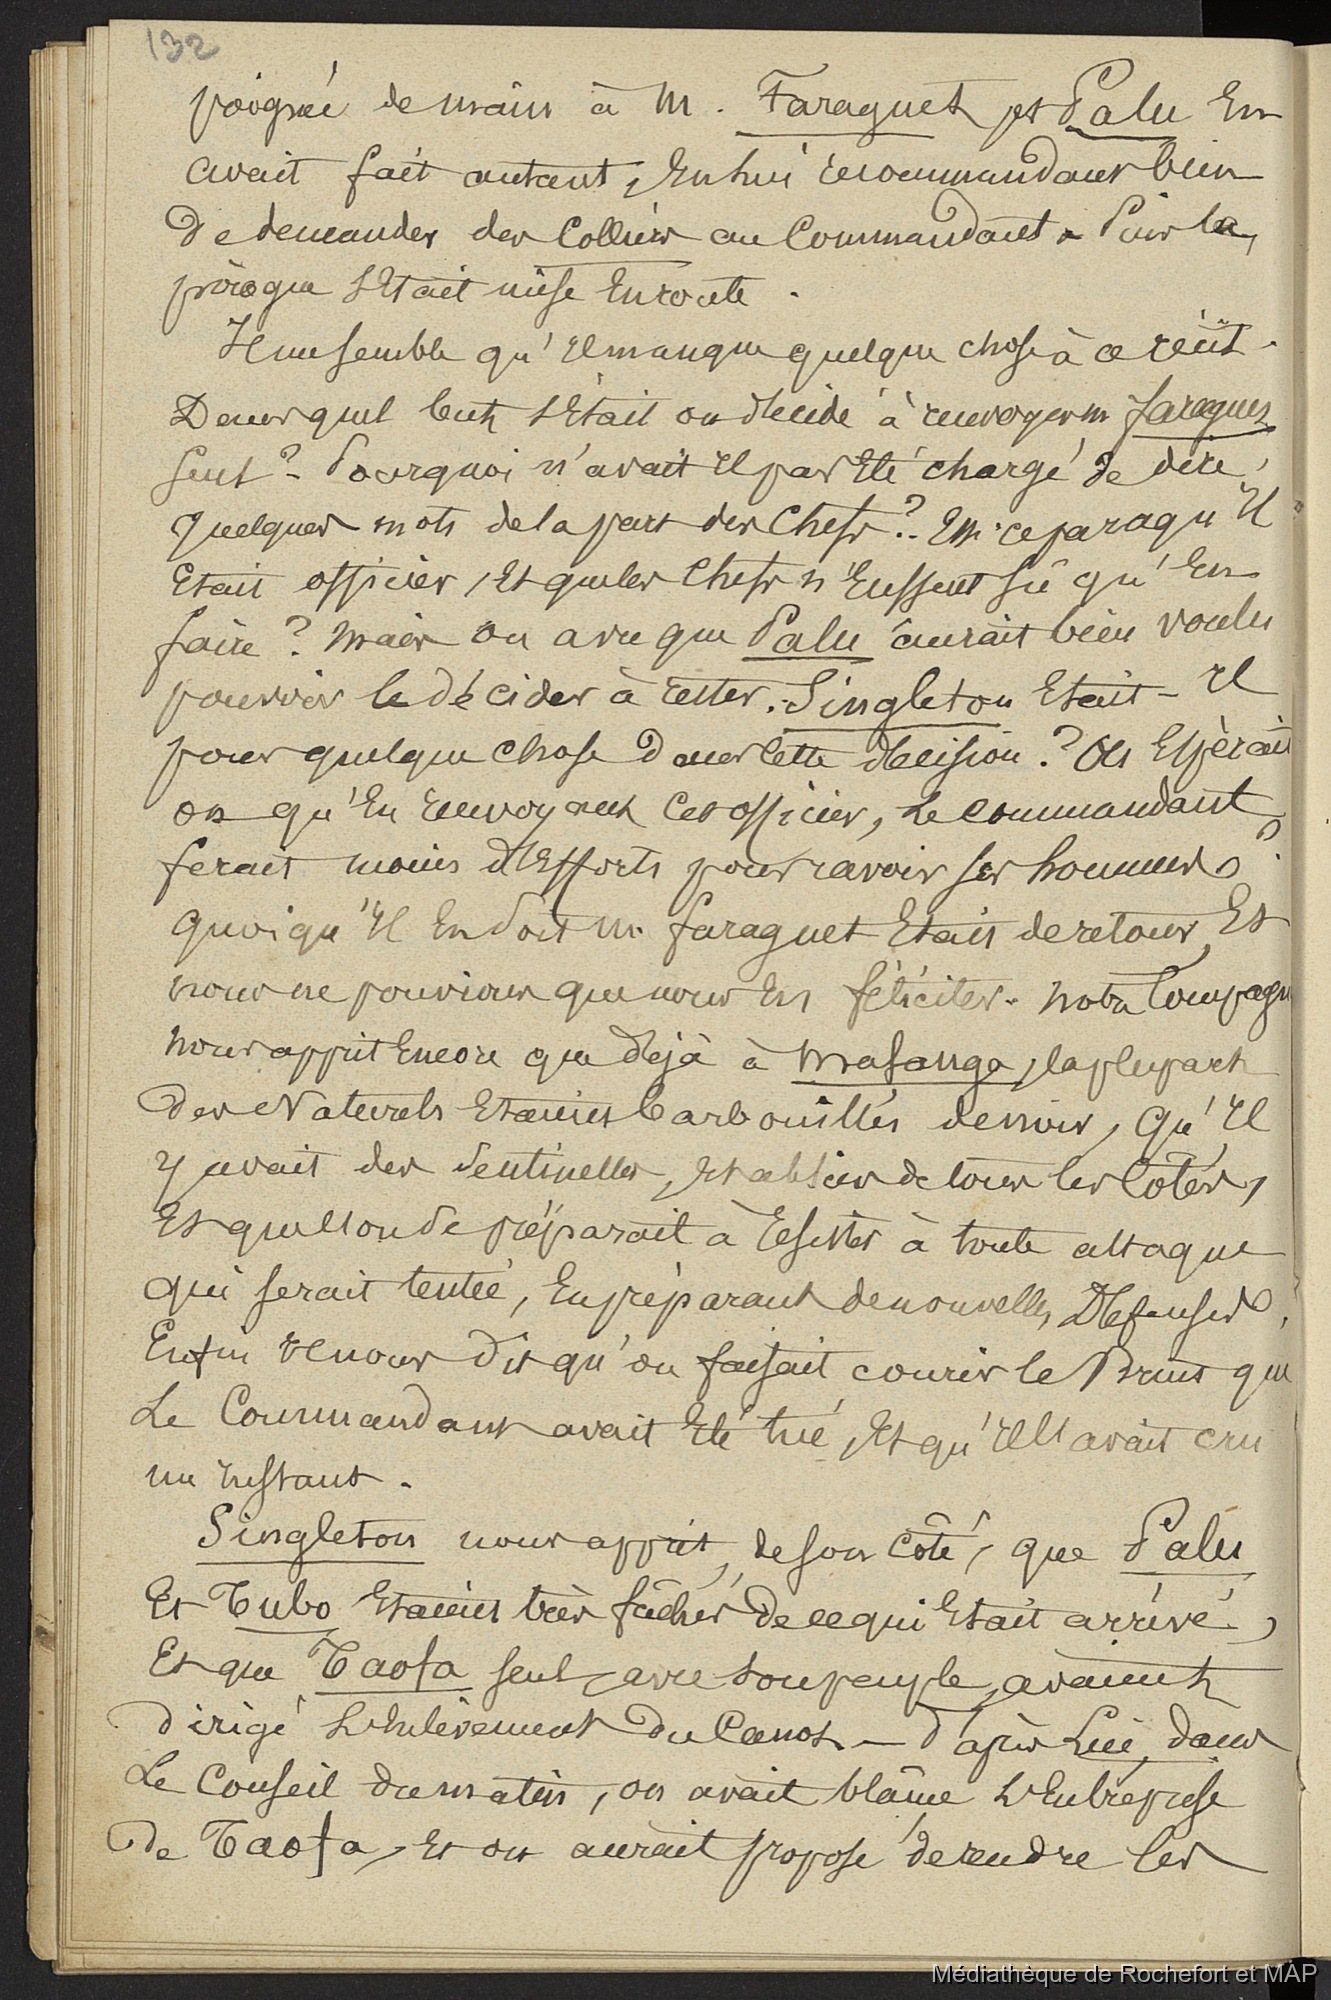 132
poignée de main à M. Faraguet et Palu en
avait fait autant, en lui recommandant bien
De demander des Colliers au Commandant. Puis la
pirogue s'était mise En route.
Il me semble qu'il manque quelque chose à ce récit.
Dans quel but s'était on décidé à renvoyer m faraguet
seul? - Pourquoi n'avait il pas été chargé de dire
quelques mots de la part des Chefs?.. Est-ce parcequ'il
Etait officier, Et que les Chefs n'Eussent sû qu'En
faire? Mais on a vu que Palu aurait bien voulu
pouvoir le décider à rester. Singleton Etait-il
pour quelque chose dans cette décision? Ou Espérait
on qu'En renvoyant Cet officier, Le commandant
ferait moins d'Efforts pour ravoir ses hommes?
quoiqu'il En soit M. faraguet Etait de retour, Et
nous ne pouvions que nous En féliciter. Notre Compagn
nous apprit Encore que déjà à Mafanga, la plupart
des Naturels Etaient barbouillés de noir, qu'il
y avait des Sentinelles, Etablies de tous les Côtés,
Et que l'on se préparait à résister à toute attaque
qui serait tentée, En préparant de nouvelles Défenses.
Enfin Il nous dit qu'on faisait courir le Bruit que
Le Commandant avait été tué, Et qu'il l'avait cru
un instant.
Singleton nous apprit, de son côté, que Palu
Et Tubo Etaient très fâchés de ce qui Etait arrivé,
Et que Taofa seul, avec son peuple, avaient
dirigé L'Enlèvement Du Canot. - D'après Lui, dans
Le Conseil du matin, on avait blâmé L'Entreprise
de Taofa, Et on aurait proposé de rendre les
Médiathèque de Rochefort et MAP